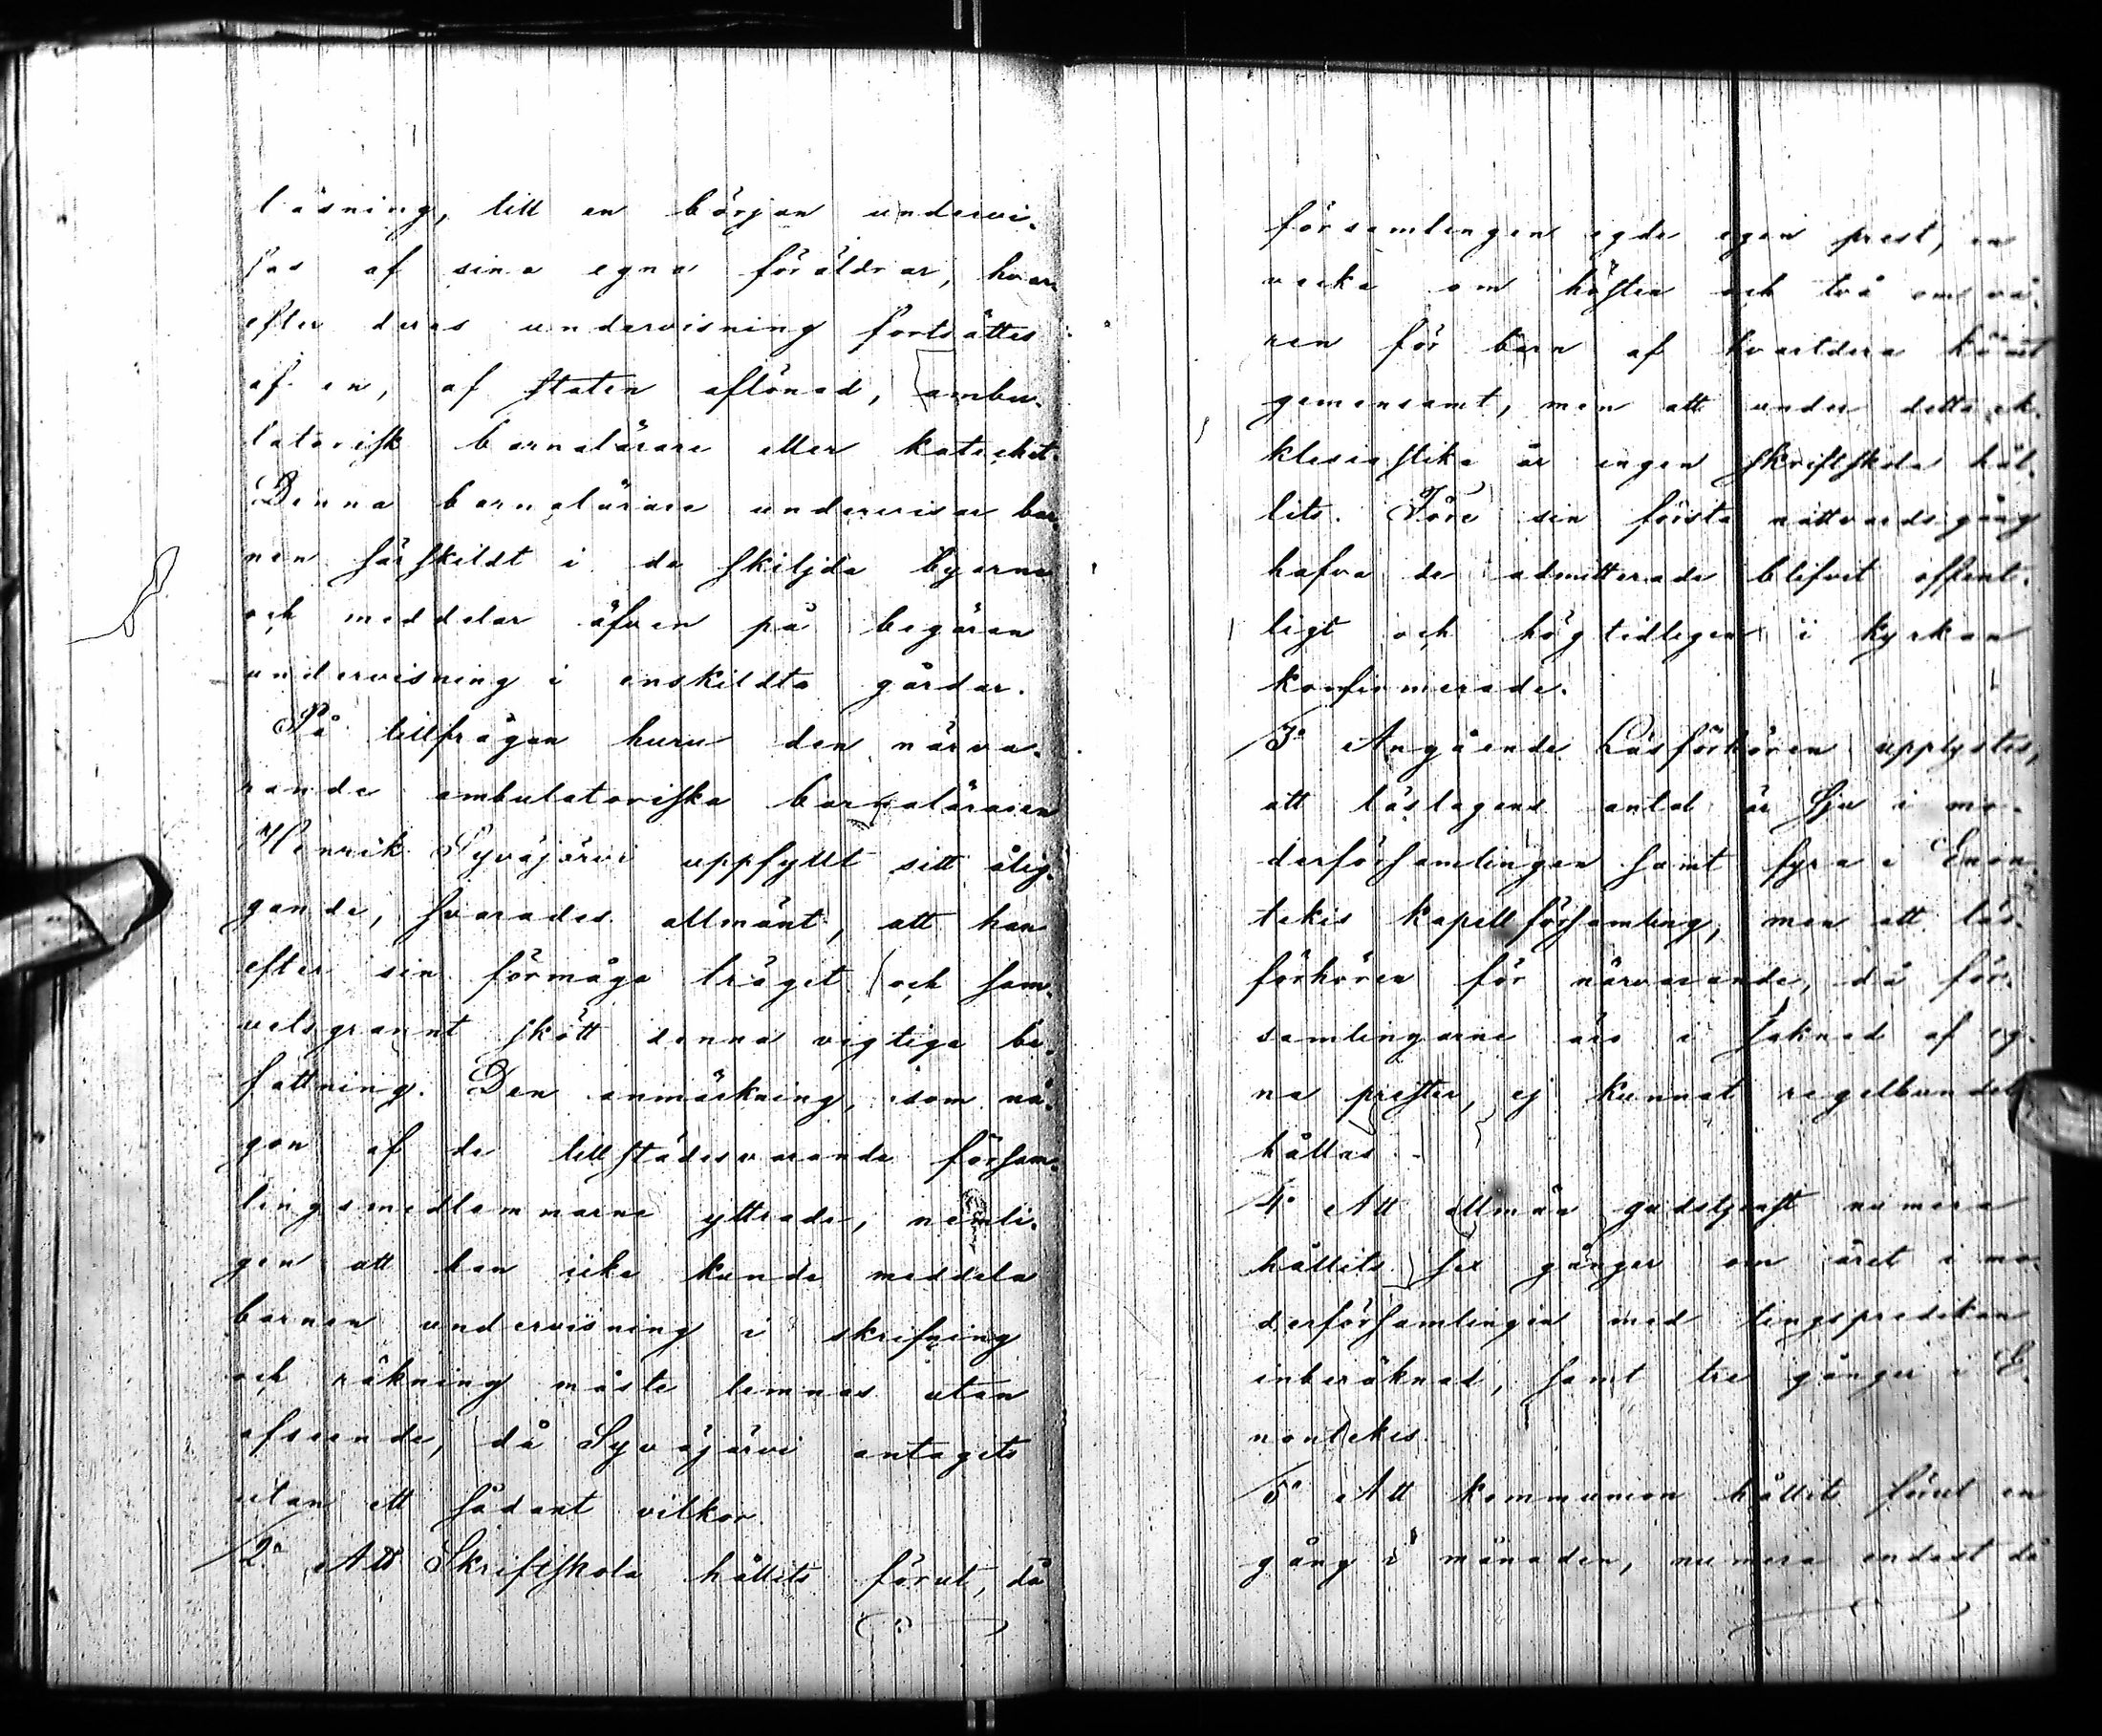 läsning, till en början undervi-
sas af sina egna föräldrar, hvar-
efter deras undervisning fortsättes
af en, af staten aflönad, ambu-
latorisk barnalärare eller katechet.
Denna barnalärare undervisar bar-
nen särskildt i de skiljda byarne
och meddelar äfven på begäran
undervisning i enskildta gårdar.
På tillfrågan huru den närva-
rande ambulatoriska barnaläraren
Henrik Syväjärvi uppfyllt sitt ålig-
gande, svarades allmänt, att han
efter sin förmåga träget och sam-
vetsgrannt skött denna vigtiga be-
fattning. Den anmärkning, som nå-
gon af de tillstädesvarande försam-
lingsmedlemmarne yttrade, nemli-
gen att han icke kunde meddela
barnen undervisning i skrifning
och räkning måste lemnas utan
afseende, då Syväjärvi antagits
utan ett sådant vilkor.
2o Att Skriftskola hållits förut, då
församlingen egde egen prest, en
vecka om hösten och två om vå-
ren för barn af hvartdera könet
gemensamt, men att under detta ek-
klesiastika år ingen skriftskola hål-
lits. Före sin första nattvardsgång
hafva de admitterade blifvit offent-
ligt och högtidligen i kyrkan
konfirmerade.
3o Angående Läsförhören upplystes,
att läslagens antal är sju i mo-
derförsamlingen samt fyra i Enon-
tekis kapellförsamling, men att läs-
förhören för närvarande, då för-
samlingarne äro i saknad af eg-
na prester, ej kunnat regelbundet
hållas.
4o Att allmän gudstjenst numera
hållits sex gånger om året i mo-
derförsamlingen med tingspredikan
inberäknad, samt tre gånger i E-
nontekis
5o Att kommunion hållits förut en
gång i månaden, numera endast då